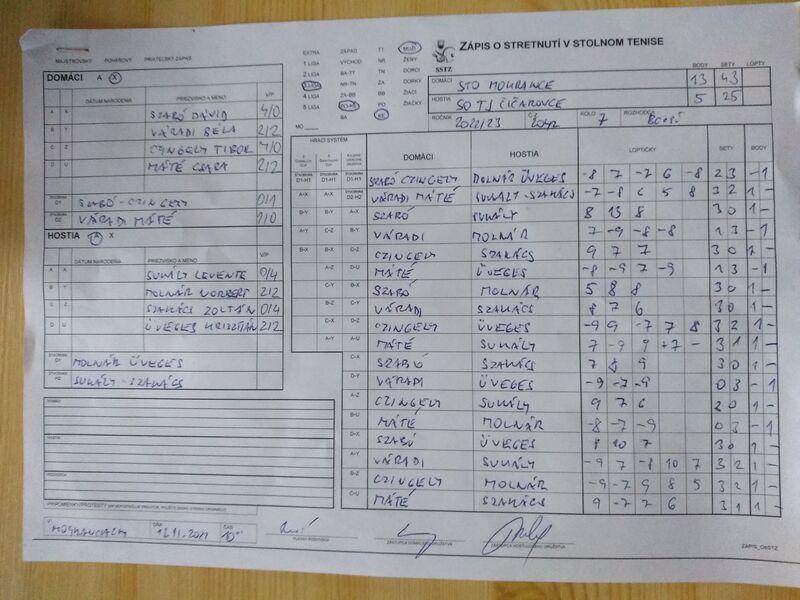 MAJSTROVSKÝ POHÁROVÝ PRIATEĽSKÝ ZÁPAS
EXTRA ZÁPAD TT MUŽI
1 LIGA VÝCHOD NR ŽENY
2 LIGA BA-TT TN DORCI
3 LIGA NR-TN ZA DORKY
4 LIGA ZA-BB BB ŽIACI
5 LIGA PO-KE PO ŽIAČKY
BA KE
MO
SSTZ
ZÁPIS O STRETNUTÍ V STOLNOM TENISE
BODY SETY LOPTY
DOMÁCI STO MOKRANCE 13 43
HOSTIA SO TJ ČIČAROVCE 5 25
ROČNÍK 2022/23 KOLO 7 ROZHODCA
DOMÁCI A X
DÁTUM NARODENIA PRIEZVISKO A MENO V/P
A X SZABÓ DÁVID 4/0
B Y VÁRADI BELA 2/2
C Z CZINGELY TIBOR 4/0
D U MÁTÉ CSABA 2/2
ŠTVORHRA D1 SZABÓ-CZINGELY 0/1
ŠTVORHRA D2 VÁRADI MÁTÉ 1/0
HOSTIA A X
DÁTUM NARODENIA PRIEZVISKO A MENO V/P
A X SUHÁLY LEVENTE 0/4
B Y MOLNÁR NORBERT 2/2
C Z SZAKÁCS ZOLTÁN 0/4
D U ÜVEGES KRISZTIÁN 2/2
ŠTVORHRA MOLNÁR ÜVEGES
ŠTVORHRA H2 SUHÁLY-SZAKÁCS
DOMÁCI
HOSTIA
ROZHODCA
HRACÍ SYSTÉM DOMÁCI HOSTIA LOPTIČKY SETY BODY
D1-H1 D1-H1 D1-H1 SZABÓ CZINGELY MOLNÁR ÜVEGES -8 7 -7 6 -8 2 3 -1
A-X A-X D2-H2 VÁRADI MÁTÉ SUHÁLY-SZAKÁCS -7 -8 6 5 8 3 2 1-
B-Y B-Y A-X SZABÓ SUHÁLY 8 13 8 3 0 1-
A-Y C-Z B-Y VÁRADI MOLNÁR 7 -9 -8 -8 1 3 -1
B-X B-X C-Z CZINGELY SZAKÁCS 9 7 7 3 0 1-
A-Z D-U MÁTÉ ÜVEGES -8 -9 7 -9 1 3 -1
C-Y B-X SZABÓ MOLNÁR 5 8 8 3 0 1-
B-Z C-Y VÁRADI SZAKÁCS 8 7 6 3 0 1-
C-X D-Z CZINGELY ÜVEGES -9 9 -7 7 8 3 2 1-
A-Y A-U MÁTÉ SUHÁLY 7 -9 9 +7 - 3 1 1-
C-X SZABÓ SZAKÁCS 7 8 9 3 0 1-
D-Y VÁRADI ÜVEGES -9 -7 -9 0 3 -1
A-Z CZINGELY SUHÁLY 9 7 6 2 0 1-
B-U MÁTÉ MOLNÁR -8 -7 -9 0 3 -1
D-X SZABÓ ÜVEGES 8 10 7 3 0 1-
A-Y VÁRADI SUHÁLY -9 7 -8 10 7 3 2 1-
B-Z CZINGELY MOLNÁR -9 -7 9 8 5 3 2 1-
C-U MÁTÉ SZAKÁCS 9 -7 7 6 3 1 1-
DŇA ČAS
VLASTNÝ ROZHODCA
ZÁSTUPCA DOMÁCEHO DRUŽSTVA
ZÁSTUPCA HOSŤUJÚCEHO DRUŽSTVA
ZÁPIS_OSSTZ